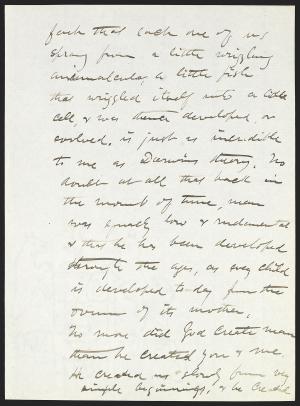 fact that each one of us
sprang from a little wriggling
animalcula, a little fish
that wriggled itself into a little
cell, & was thence developed, or
evolved, is just as incredible
to me as Darwins theory. No
doubt at all that back in
the womb of time, man
was equally low & rudimental
& that he has been developed
through the ages, as every child
is developed to-day from the
ovum of its mother.
No more did God create man
than he created you & me.
He created us slowly from very
simple beginnings, & he created